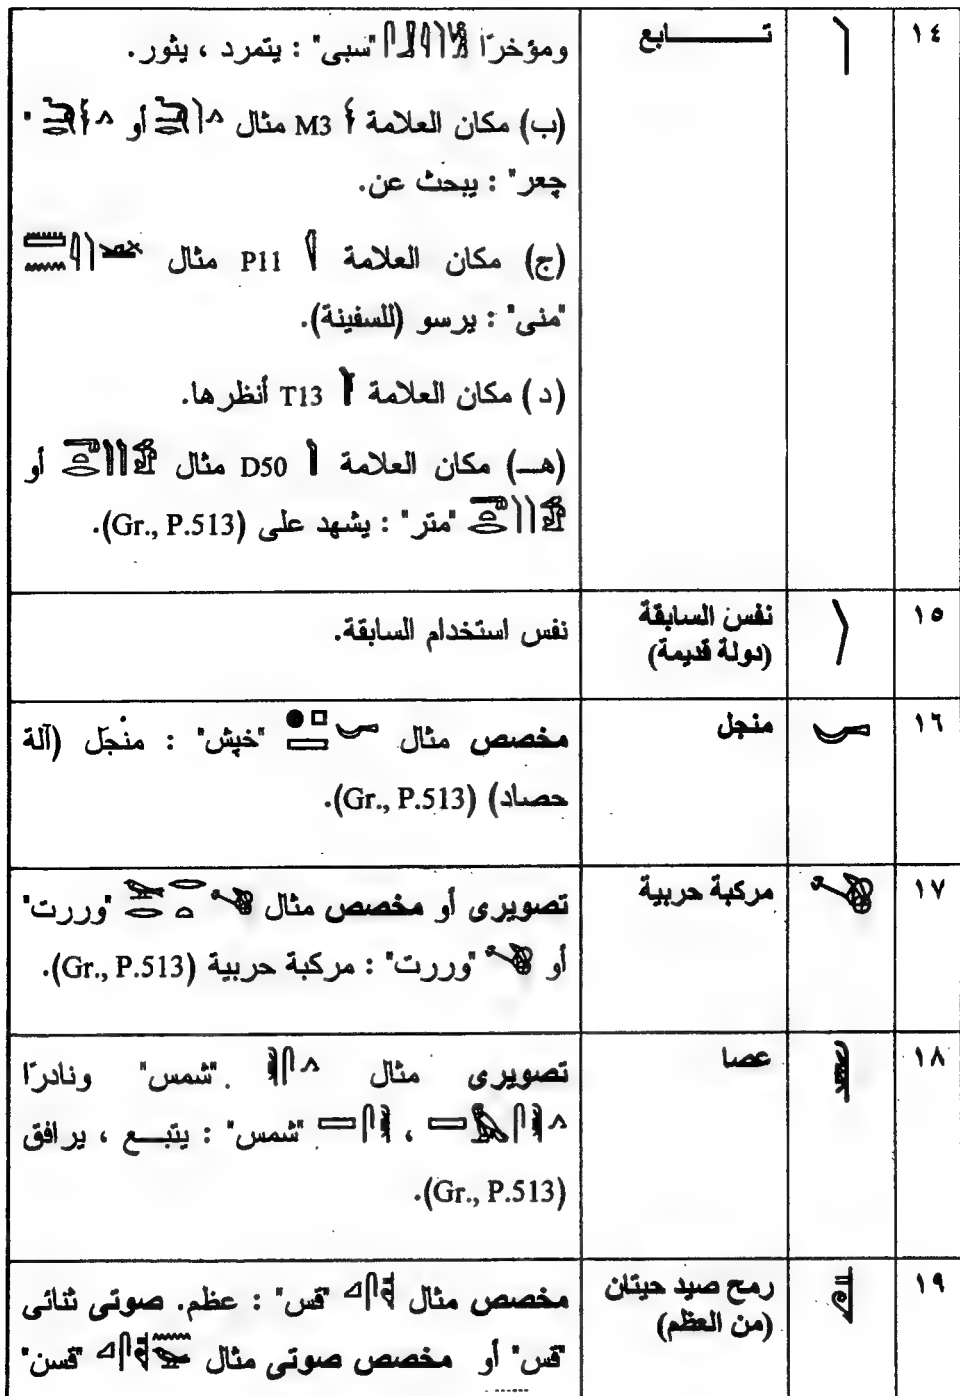 ١٤ تـــــابع ومؤخرًا "سبى" : يتمرد ، يثور.
(ب) مكان العلامة M3 مثال أو "
چعر" : يبحث عن.
(ج) مكان العلامة P11 مثال
"منى" : يرسو (للسفينة).
(د) مكان العلامة T13 أنظرها.
(هـ) مكان العلامة D50 مثال أو
"متر" : يشهد على (Gr., P.513).
١٥ نفس السابقة
(دولة قديمة)
نفس استخدام السابقة.
١٦ منجل مخصص مثال "خپش" : منجل (آلة
حصاد) (Gr., P.513).
١٧ مركبة حربية تصويرى أو مخصص مثال "وررت"
أو "وررت" : مركبة حربية (Gr., P.513).
١٨ عصا تصويرى مثال "شمس" ونادرًا
، "شمس" : يتبـــع ، يرافق
(Gr., P.513).
١٩ رمح صيد حيتان
(من العظم)
مخصص مثال "قس" : عظم. صوتى ثنائى
"قس" أو مخصص صوتى مثال "قسن"